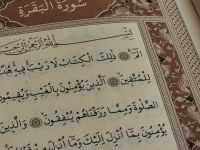 سُورَةُ الْبَقَرَةِ
بِسْمِ اللَّهِ الرَّحْمَٰنِ الرَّحِيمِ
الٓمٓ ذَٰلِكَ الْكِتَابُ لَا رَيْبَ فِيهِ هُدًى
لِلْمُتَّقِينَ الَّذِينَ يُؤْمِنُونَ بِالْغَيْبِ وَيُقِيمُونَ
الصَّلَوٰةَ وَمِمَّا رَزَقْنَاهُمْ يُنْفِقُونَ وَالَّذِينَ
يُؤْمِنُونَ بِمَا أُنْزِلَ إِلَيْكَ وَمَا أُنْزِلَ مِنْ